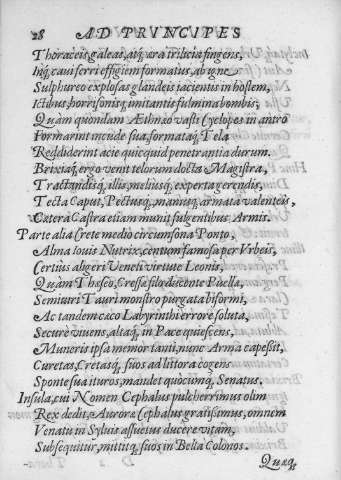 28 AD PRINCIPES
Thoraceis, galeas, atq; æra trilicia fingens,
Inq; caui ferri effigiem formatus, ab igne
Sulphureo explosas glandeis iacientis in hostem,
Ictibus, horrisonisq; imitantis fulmina bombis;
Quàm quondam Æthnæo vasti Cyclopes in antro
Formarint incude sua, formataq; Tela
Reddiderint acie quicquid penetrantia durum.
Brixiaq; ergo venit telorum docta Magistra,
Tractandisq; illis, meliusq; experta gerendis,
Tecta Caput, Pectusq;, manusq; armata valenteis,
Cætera Castra etiam munit fulgentibus Armis.
Parte alia Crete medio circumsona Ponto,
Alma Iouis Nutrix, centum famosa per Vrbeis,
Certius aligeri Veneti virtute Leonis,
Quàm Theseo, Cressæ filo ducente Puellæ,
Semiuiri Tauri monstro purgata biformi,
Ac tandem cæco Labyrinthi errore soluta,
Secure viuens, altaq; in Pace quiescens,
Muneris ipsa memor tanti, nunc Arma capessit,
Curetas, Cretasq; suos ad littora cogens
Sponte sua ituros, mandet quòcumq; Senatus.
Insula, cui Nomen Cephalus pulcherrimus olim
Rex dedit, Auroræ Cephalus gratissimus, omnem
Venatu in Syluis assuetus ducere vitam,
Subsequitur, mittitq; suos in Bella Colonos.
Quæq;